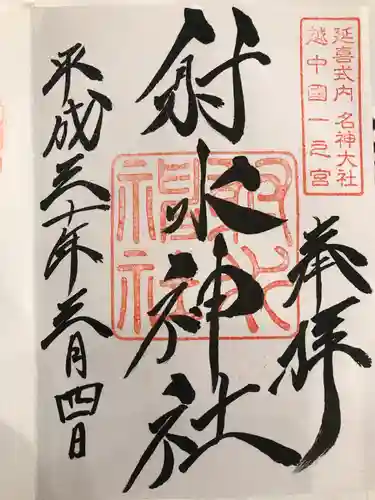 延喜式内 名神大社
越中國一之宮
奉拝
射水神社
射水神社
平成三十年三月四日